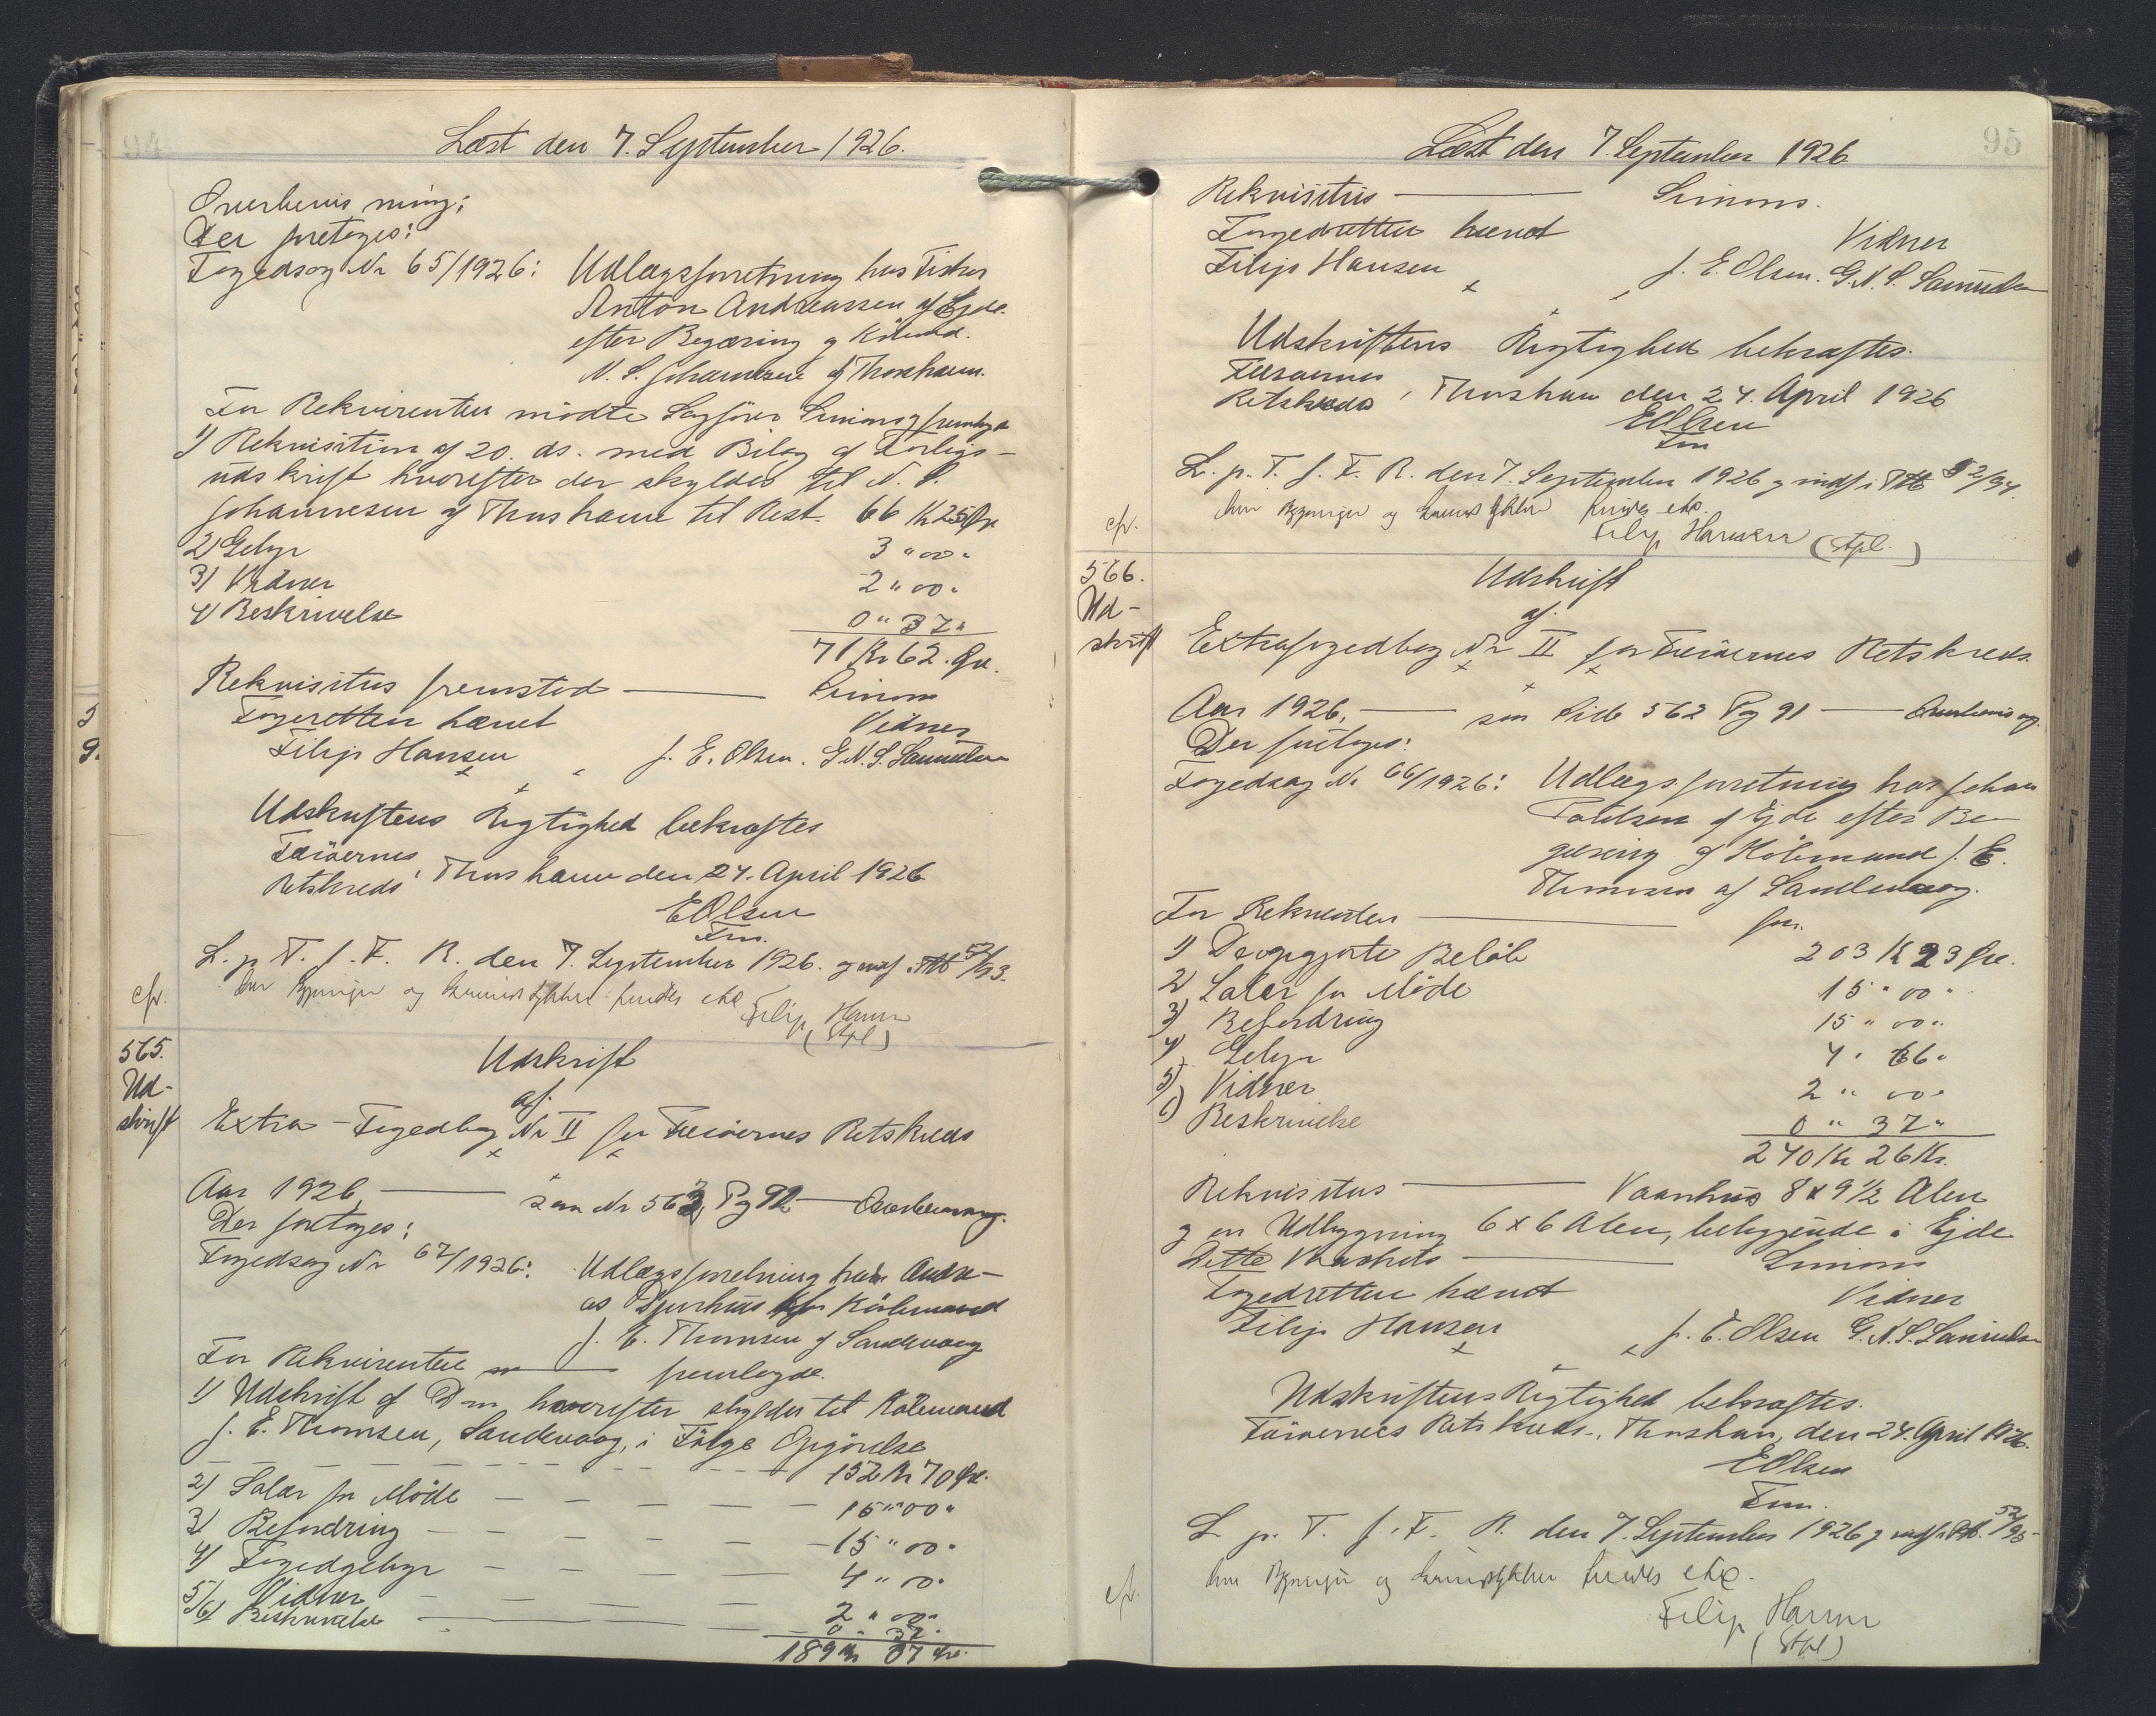 94
Læst den 7. September 1926.
Overbevisning;
Der foretoges:
Fogedsag Nr 65/1926: Udlægsforretning hos Fisker
Anton Andreassen af Ejde
efter Begæring af Købmd.
N. S. Johannesen af Thorshavn.
For Rekvirenten mødte Sagfører Simonsen
1) Rekvisition af 20. ds. med Bilag af Forligs-
udskrift hvorefter der skyldes til N. S.
Johannesen af Thorshavn til Rest. 66 Kr 25 Øre
2) Gebyr 3 " 00 "
3) Vidner 2 " 00 "
4) Beskrivelse 0 " 37 "
71 Kr 62. Øre.
Rekvisitus fremstod ——— Simons
Fogeretten hævet Vidner
Filip Hansen J. E. Olsen. G. N. S. Samuelsen
Udskriftens Rigtighed bekræftes
Færøernes
Retskreds, Thorshavn den 24. April 1926
EOlsen
Fm.
L. p. T. f. F. R. den 7. September 1926. og indf. i Ttb 52/93.
Filip Hansen
(Stpl)
cfr.
565.
Ud-
skrift
Udskrift
af.
Extra-Fogedbog Nr II for Færøernes Retskreds
Aar 1926, ——— som Nr 563, Pg 92 —— Overbevisning.
Der foretoges:
Fogedsag Nr 67/1926: Udlægsforretning hos Andre-
as Djurhuus for Købmand
J. E. Thomsen af Sandevaag
For Rekvirenten ——— fremlagde.
1) Udskrift af Dom hvorefter skyldes til Købmand
J. E. Thomsen, Sandevaag, i Følge Opgørelse
152 Kr 70 Øre.
2) Salær for Møde 15 " 00 "
3) Befordring 15 " 00 "
4) Fogedgebyr 4 " 00 "
5) Vidner 2 " 00 "
6) Beskrivelse 0 " 37 "
189 Kr 07 Øre.
95
Læst den 7. September 1926
Rekvisitus ——— Simons.
Fogedretten hævet Vidner
Filip Hansen J. E. Olsen. G. N. S. Samuelsen
Udskriftens Rigtighed bekræftes.
Færøernes
Retskreds, Thorshavn den 24. April 1926
EOlsen
Fm
L. p. T. f. F. R. den 7. September 1926 og indf. i Ttb 52/94.
Filip Hansen (Stpl.)
cfr.
566.
Ud-
skrift
Udskrift
af.
Extrafogedbog Nr II for Færøernes Retskreds.
Aar 1926, ——— som Side 562 Pg 91 —— Overbevisng.
Der foretoges:
Fogedsag Nr 66/1926: Udlægsforretning hos Johan
Poulsen af Ejde efter Be-
gæring af Købmand J. E.
Thomsen af Sandevaag.
For Rekvirenten ——— fm.
1) De opgjorte Beløb 203 Kr 23 Øre.
2) Salær for Møde 15 " 00 "
3) Befordring 15 " 00 "
4) Gebyr 4 " 66 "
5) Vidner 2 " 00 "
6) Beskrivelse 0 " 37 "
240 Kr 26 Kr.
Rekvisitus ——— Vaanhus 8 x 9 1/2 Alen
og en Udbygning 6 x 6 Alen, beliggende i Ejde
Dette ——— Simons
Fogedretten hævet Vidner
Filip Hansen J. E. Olsen G. N. S. Samuelsen
Udskriftens Rigtighed bekræftes.
Færøernes Retskreds., Thorshavn, den 24. April 1926.
EOlsen
Fm.
L. p. T. f. F. R. den 7. September 1926 og indf. i Ttb. 52/95
cfr.
Filip Hansen
(Stpl)